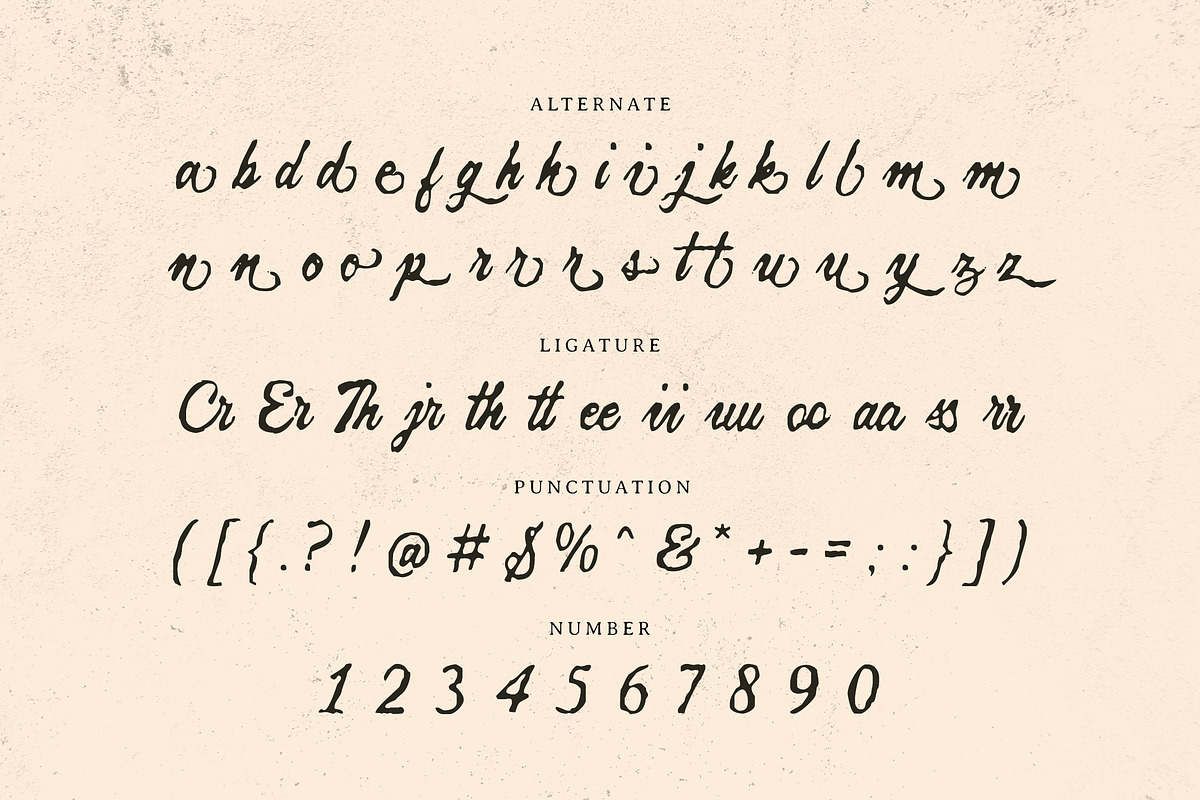 ALTERNATE
a b d d d e f g h h i i j k k l l m m
n n o o p r r r r s t t u u y z z
LIGATURE
Cr Er Th jr th tt ee ii uu oo aa ss rr
PUNCTUATION
( [ { . ? ! @ # $ % ^ & * + - = ; : } ] )
NUMBER
1 2 3 4 5 6 7 8 9 0